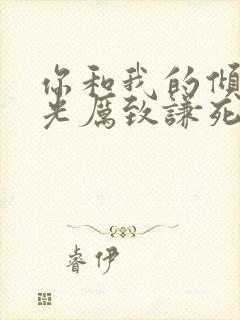 你和我的倾
光厲致謙死
睿伊